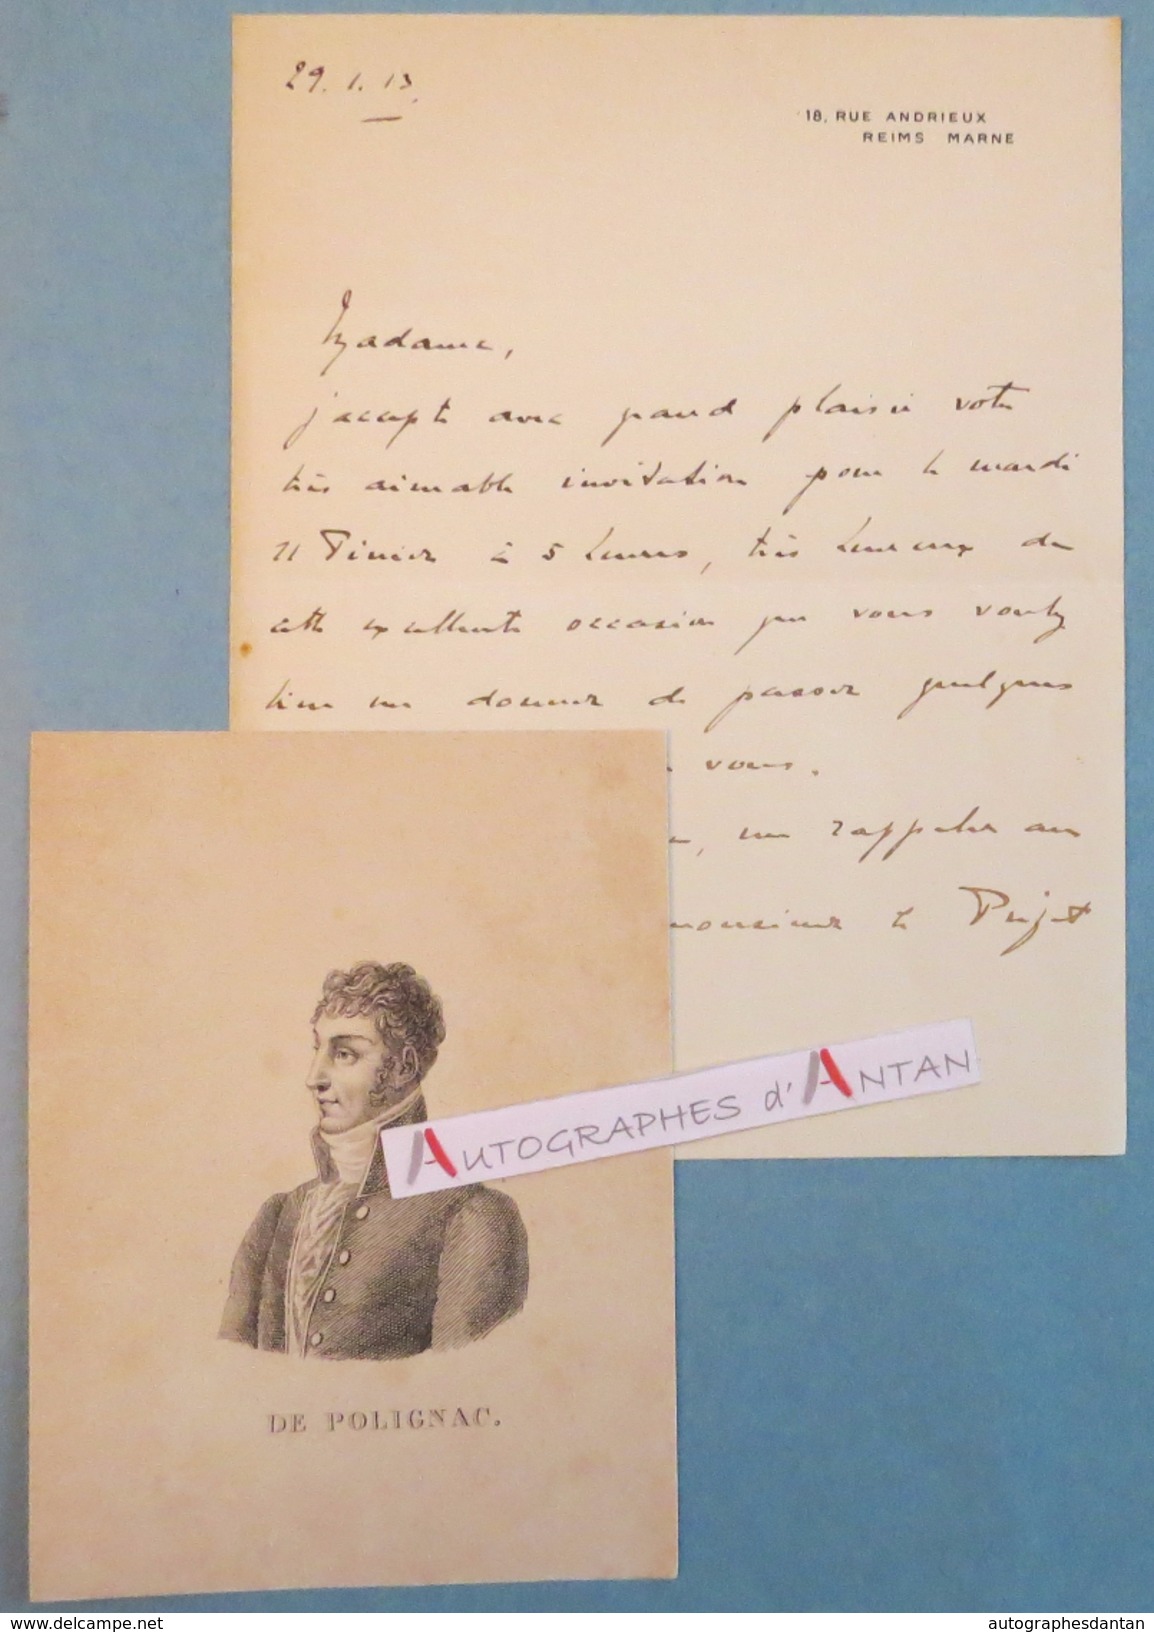 29. 1. 13.
18, RUE ANDRIEUX
REIMS MARNE
Madame,
j'accepte avec grand plaisir votre
très aimable invitation pour le mardi
11 Février à 5 heures, très heureux de
cette excellente occasion que vous voulez
bien me donner de passer quelques
vous.
, me rappeler au
monsieur le Préfet
AUTOGRAPHES d'ANTAN
DE POLIGNAC.
www.delcampe.net
autographesdantan